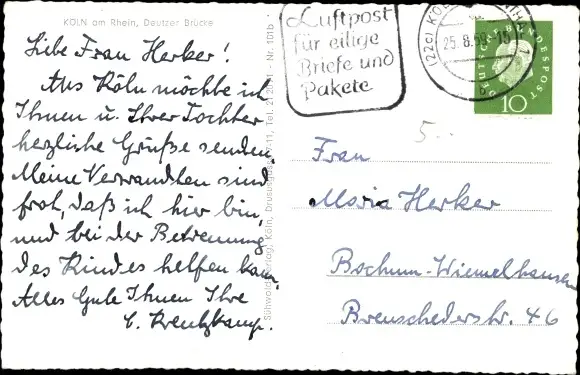 KÖLN am Rhein, Deutzer Brücke
Liebe Frau Herker!
Aus Köln möchte ich
Ihnen u. Ihrer Tochter
herzliche Grüße senden.
Meine Verwandten sind
froh, daß ich hier bin,
und bei der Betreuung
des Kindes helfen kann
Alles Gute Ihnen Ihre
C. Kreutzkamp.
Köln, Tel. Nr. 101b
Luftpost
für eilige
Briefe und
Pakete
(22c) KÖLN
25.8.59-15
1
DEUTSCHE BUNDESPOST
10
5.-
Frau
Maria Herker
Bochum-Wiemelhausen
Brenschederstr. 46